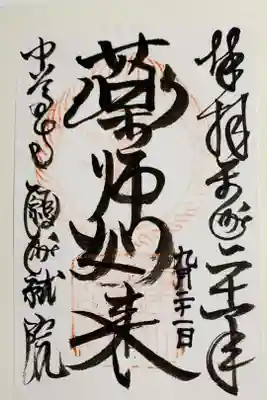 奉拝 平成二十一年
九月二十一日
薬師如来
中尊寺 願成就院